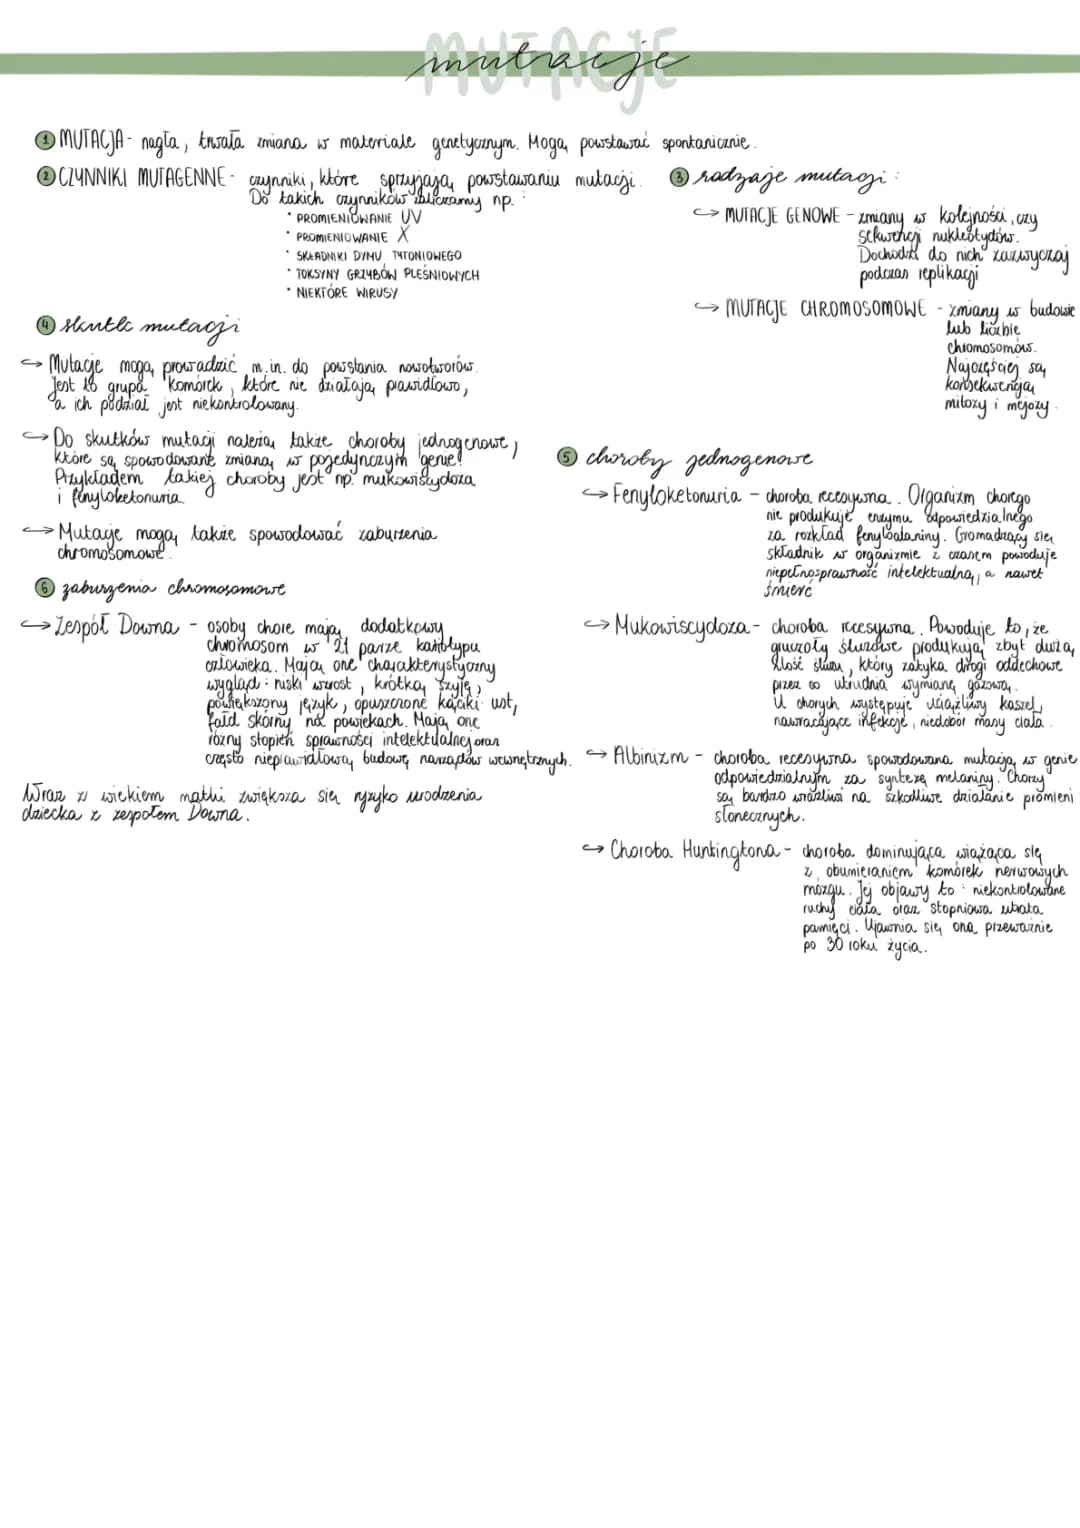 MUTACJE
mutacje
① MUTACJA - nagła, trwała zmiana w materiale genetycznym. Mogą powstawać spontanicznie.
② CZYNNIKI MUTAGENNE - czynniki, które sprzyjają powstawaniu mutacji.
Do takich czynników zaliczamy np. :
• PROMIENIOWANIE UV
• PROMIENIOWANIE X
• SKŁADNIKI DYMU TYTONIOWEGO
• TOKSYNY GRZYBÓW PLEŚNIOWYCH
• NIEKTÓRE WIRUSY
③ rodzaje mutacji :
↪ MUTACJE GENOWE - zmiany w kolejności, czy
sekwencji nukleotydów.
Dochodzi do nich zazwyczaj
podczas replikacji
↪ MUTACJE CHROMOSOMOWE - zmiany w budowie
lub liczbie
chromosomów.
Najczęściej są
konsekwencją
mitozy i mejozy.
④ skutki mutacji
↪ Mutacje mogą prowadzić m.in. do powstania nowotworów.
Jest to grupa komórek, które nie działają prawidłowo,
a ich podział jest niekontrolowany.
↪ Do skutków mutacji należą także choroby jednogenowe,
które są spowodowane zmianą w pojedynczym genie.
Przykładem takiej choroby jest np. mukowiscydoza
i fenyloketonuria.
↪ Mutacje mogą także spowodować zaburzenia
chromosomowe.
⑤ choroby jednogenowe
↪ Fenyloketonuria - choroba recesywna. Organizm chorego
nie produkuje enzymu odpowiedzialnego
za rozkład fenyloalaniny. Gromadzący się
składnik w organizmie z czasem powoduje
niepełnosprawność intelektualną, a nawet
śmierć
↪ Mukowiscydoza - choroba recesywna. Powoduje to, że
gruczoły śluzowe produkują zbyt dużą
ilość śluzu, który zatyka drogi oddechowe
przez co utrudnia wymianę gazową.
U chorych występuje uciążliwy kaszel,
nawracające infekcje, niedobór masy ciała.
↪ Albinizm - choroba recesywna spowodowana mutacją w genie
odpowiedzialnym za syntezę melaniny. Chorzy
są bardzo wrażliwi na szkodliwe działanie promieni
słonecznych.
↪ Choroba Huntingtona - choroba dominująca wiążąca się
z obumieraniem komórek nerwowych
mózgu. Jej objawy to : niekontrolowane
ruchy ciała oraz stopniowa utrata
pamięci. Ujawnia się ona przeważnie
po 30 roku życia.
⑥ zaburzenia chromosomowe
↪ Zespół Downa - osoby chore mają dodatkowy
chromosom w 21 parze kariotypu
człowieka. Mają one charakterystyczny
wygląd : niski wzrost, krótką szyję,
powiększony język, opuszczone kąciki ust,
fałd skórny na powiekach. Mają one
różny stopień sprawności intelektualnej oraz
często nieprawidłową budowę narządów wewnętrznych.
Wraz z wiekiem matki zwiększa się ryzyko urodzenia
dziecka z zespołem Downa.